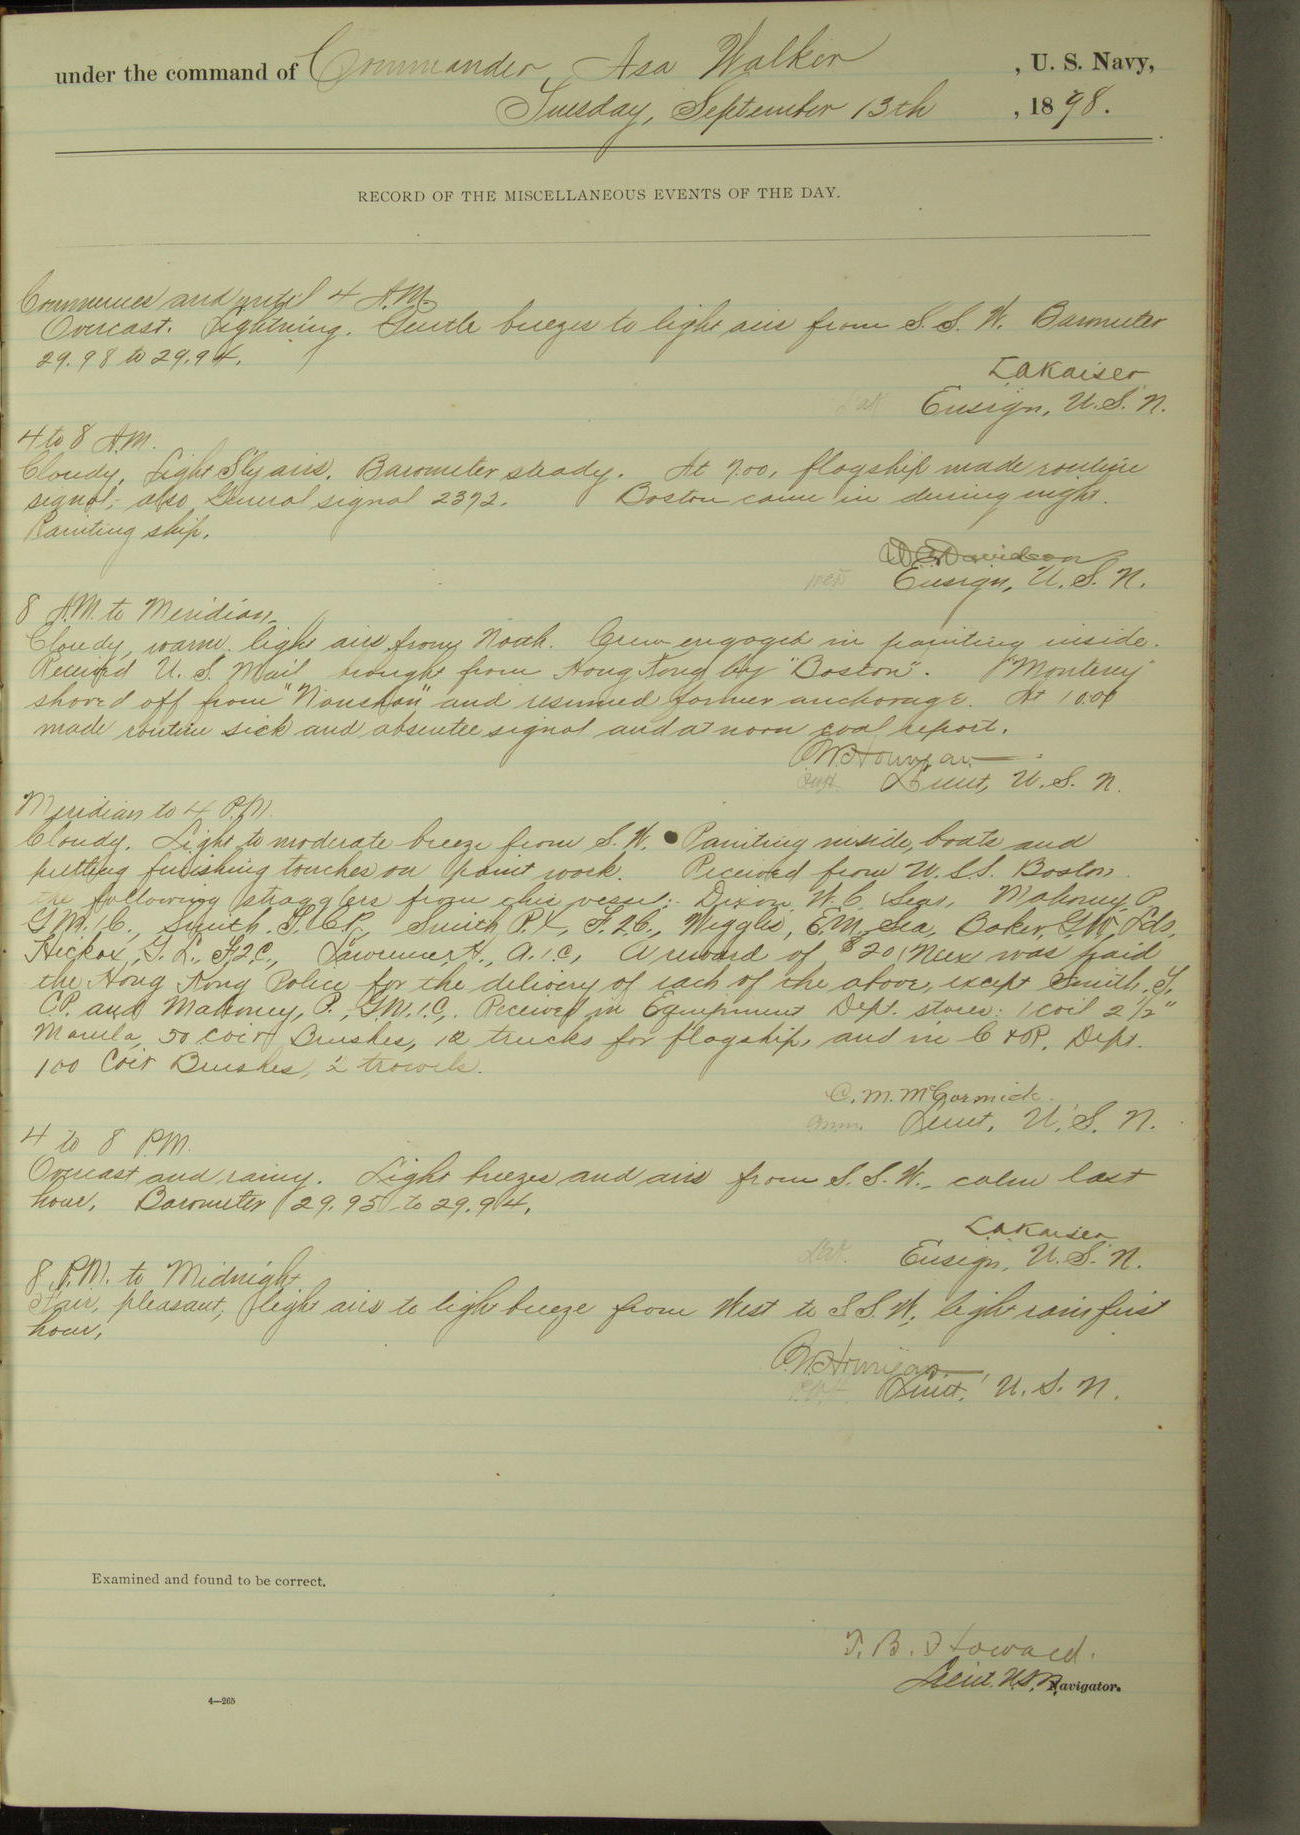 under the command of Commander, Asa Walker, U. S. Navy,
Tuesday, September 13th, 1898.
RECORD OF THE MISCELLANEOUS EVENTS OF THE DAY.
Commences and until 4 A.M.
Overcast. Lightning. Gentle breezes to light airs from S. S. W. Barometer
29.98 to 29.94.
LAKaiser
Ensign, U. S. N.
4 to 8 A.M.
Cloudy, Light S'ly airs. Barometer steady. At 7.00, flagship made routine
signal; also General signal 2372. Boston came in during night.
Painting ship.
Davidson
Ensign, U. S. N.
8 A.M. to Meridian
Cloudy, warm, light airs from North. Crew engaged in painting inside.
Received U. S. Mail brought from Hong Kong by "Boston". "Monterey"
shoved off from "Nanshan" and resumed former anchorage. At 10.00
made routine sick and absentee signal and at noon coal report.
Lieut, U. S. N.
Meridian to 4 P.M.
Cloudy. Light to moderate breeze from S. W. Painting inside, boats and
putting finishing touches on paint work. Received from U.S.S. Boston
the following stragglers from this vessel: Dixon, W. C. Sea, Mahoney P.
G.M.1C., Smith, Smith P. F.2C., E.M. Sea, Baker, G.W. Lds,
Hickox, G. L. F.2.C., Lawrence, H., A.1.C., A reward of $20 Mex was paid
the Hong Kong Police for the delivery of each of the above, except Smith, S,
C.P. and Mahoney, P., G.M.1.C. Received in Equipment Dept. stores: 1 coil 2 1/2"
Manila, 50 coir Brushes, 12 trucks for flagship, and in C & R. Dept.
100 Coir Brushes, 2 trowels.
C. M. McCormick
Lieut, U. S. N.
4 to 8 P.M.
Overcast and rainy. Light breezes and airs from S. S. W. calm last
hour. Barometer 29.95 to 29.94.
LAKaiser
Ensign, U. S. N.
8 P.M. to Midnight
Fair, pleasant, light airs to light breeze from West to S S. W, light rain first
hour.
Lieut, U. S. N.
Examined and found to be correct.
T. B. Howard.
Lieut. U.S.N. Navigator.
4—265